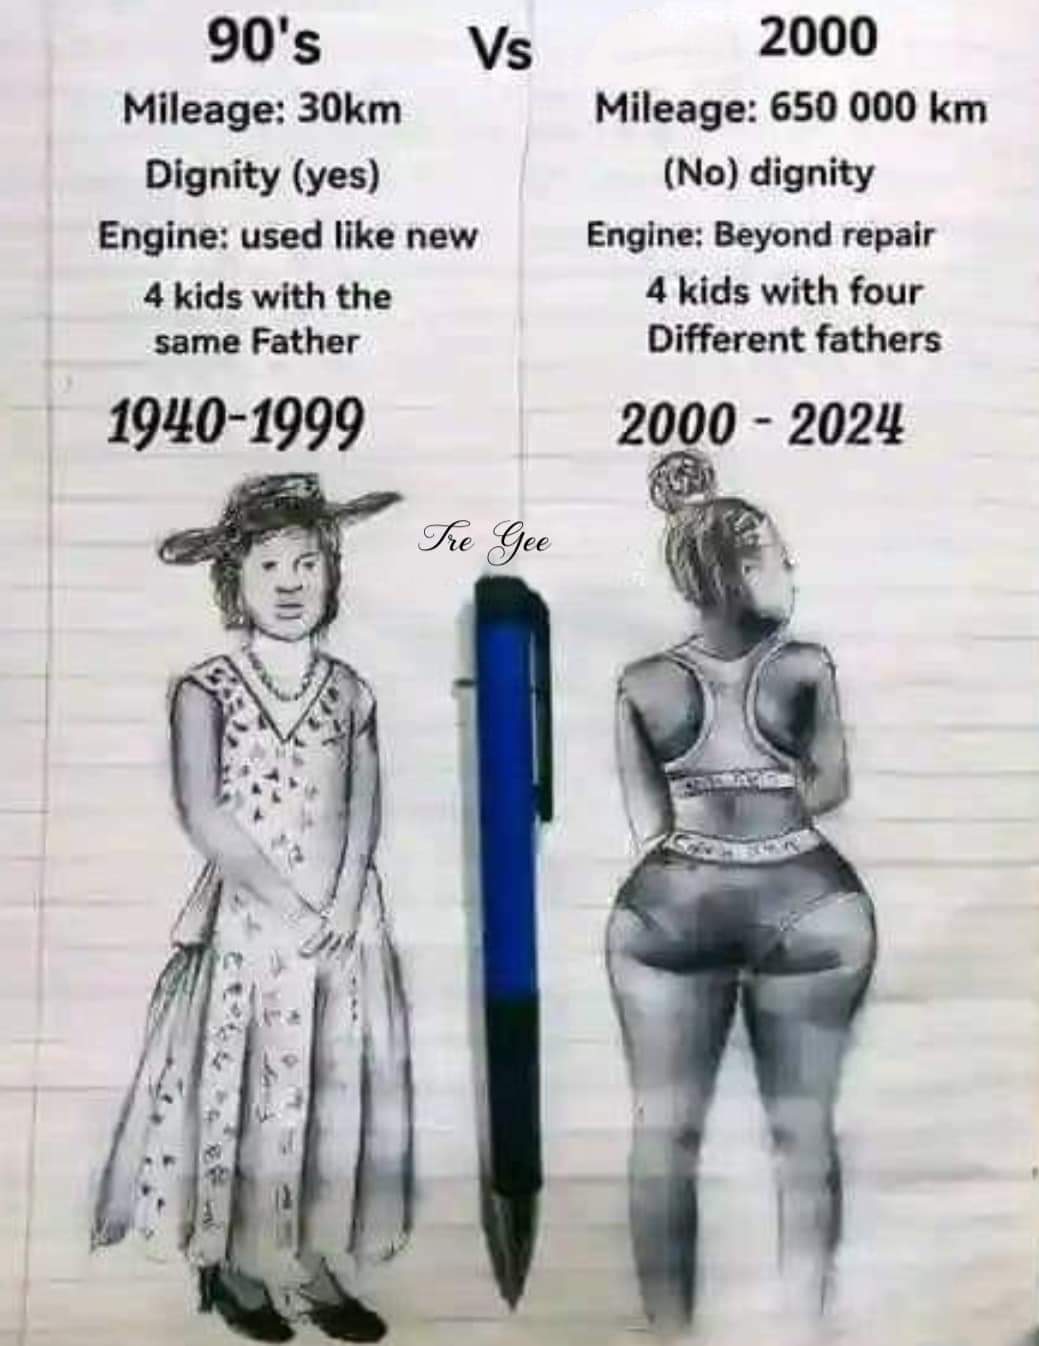 90's
Vs
2000
Mileage: 30km
Dignity (yes)
Engine: used like new
4 kids with the
same Father
1940-1999
Mileage: 650 000 km
(No) dignity
Engine: Beyond repair
4 kids with four
Different fathers
2000 - 2024
Tre Gee